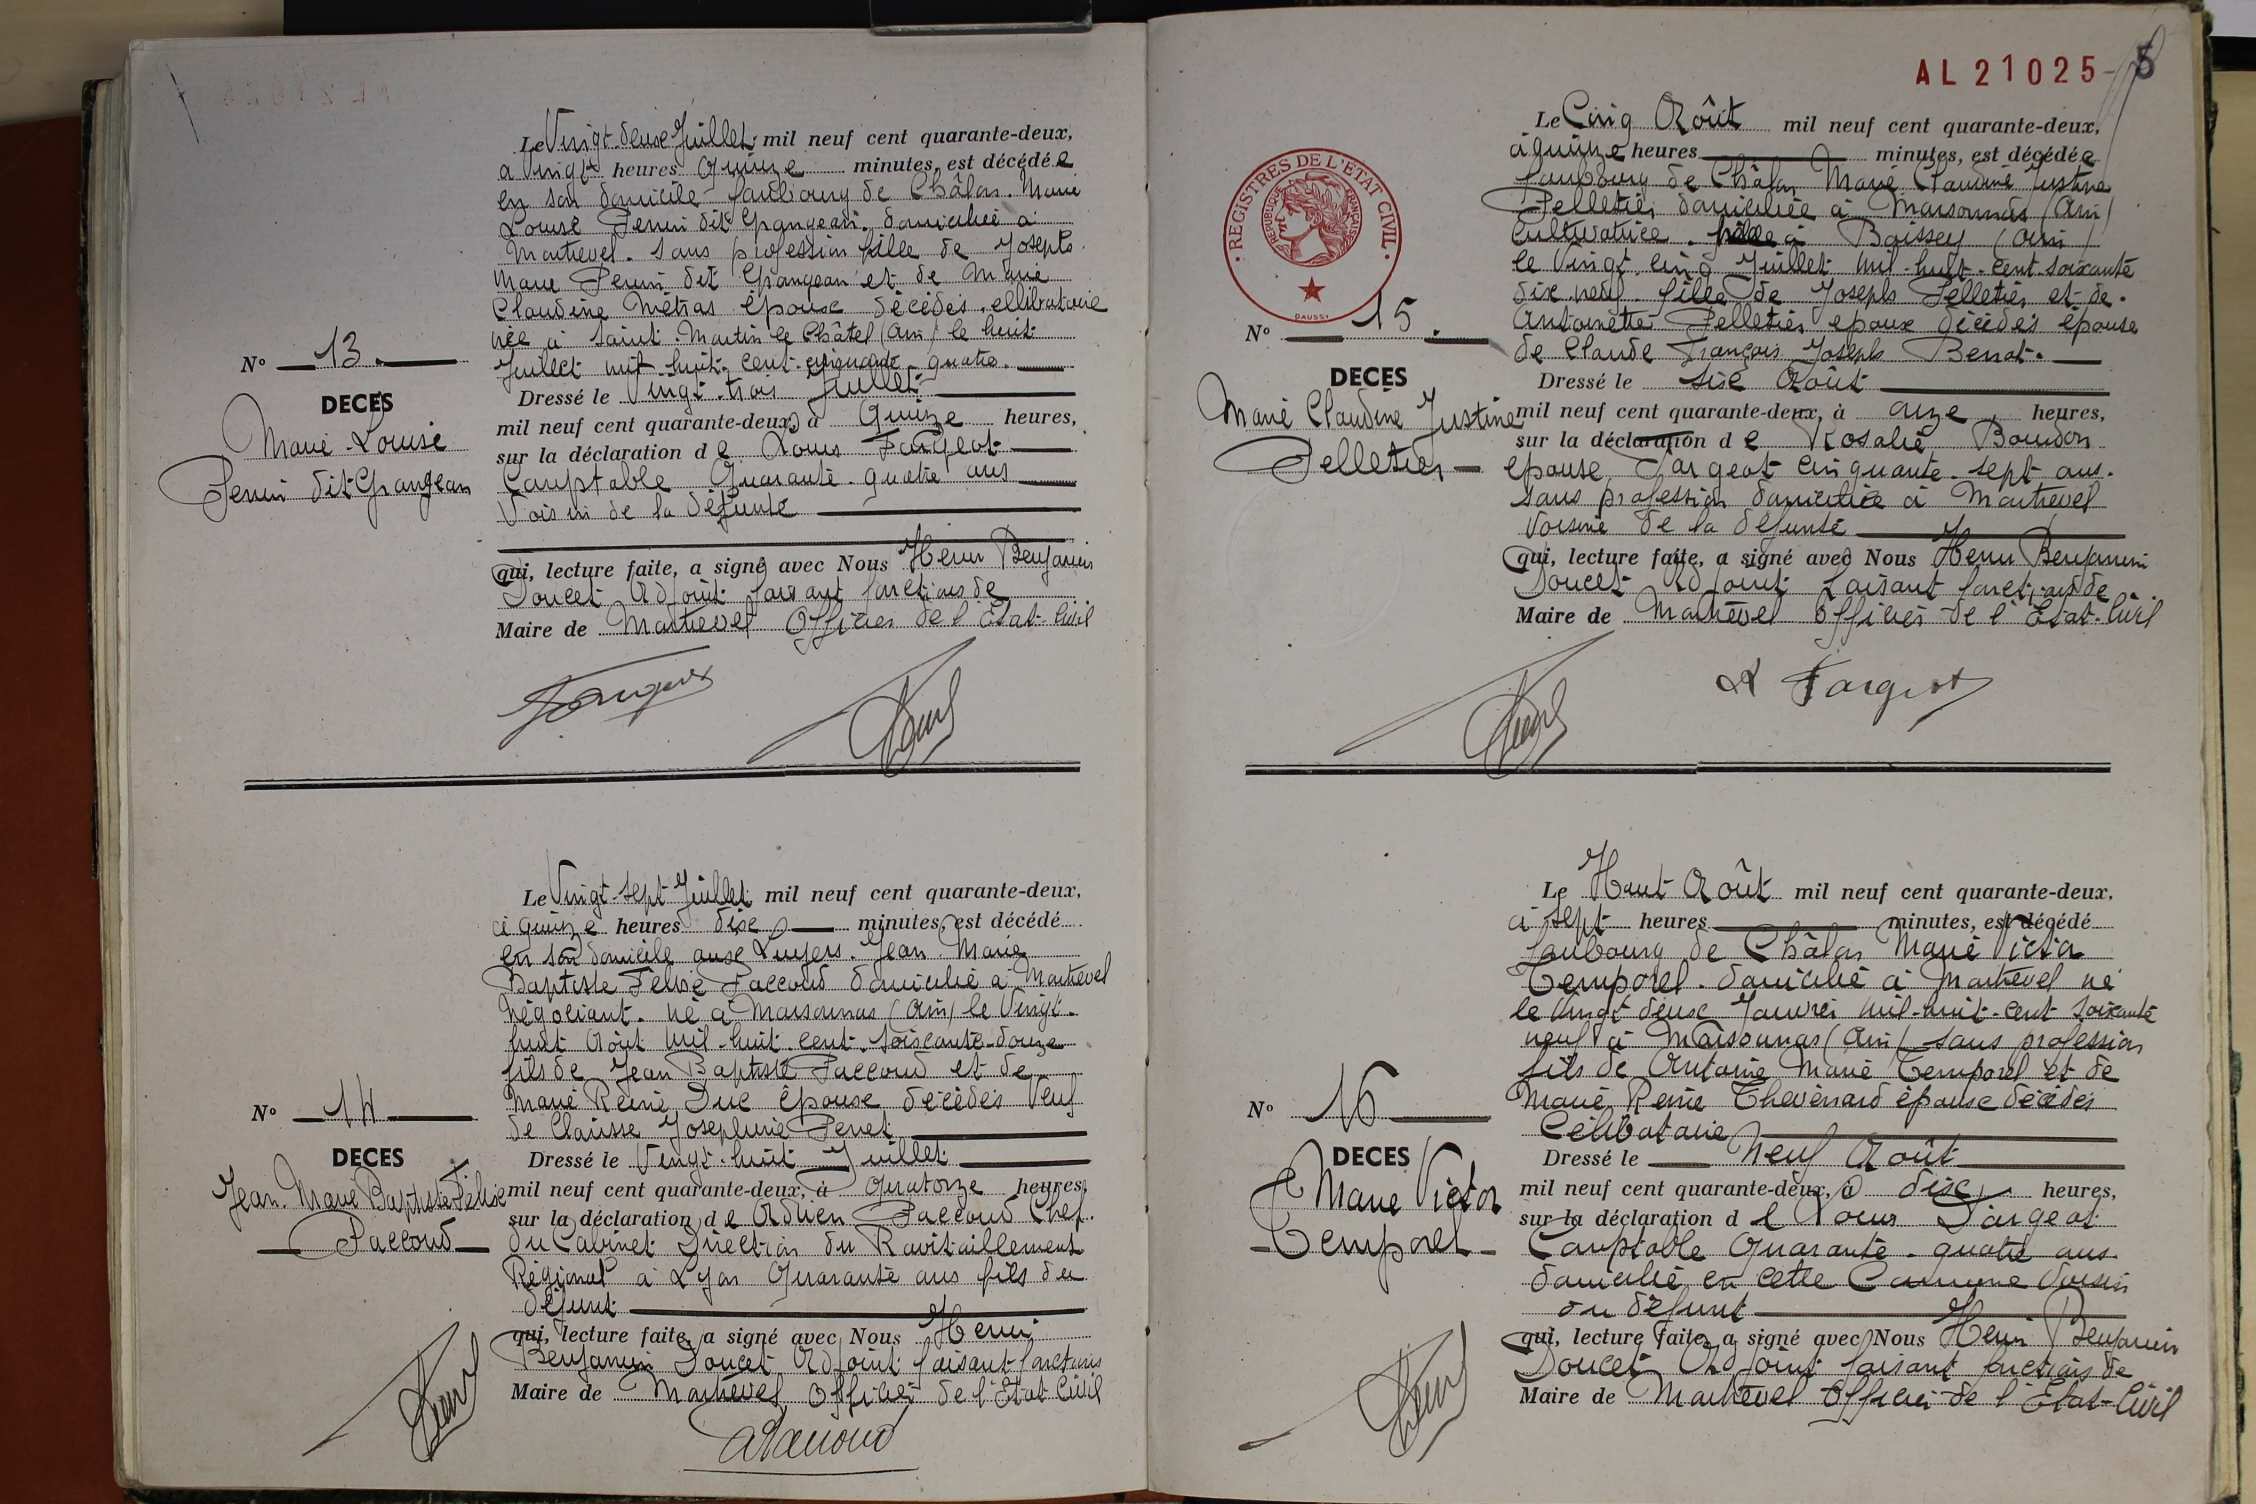 Le Vingt-deux Juillet mil neuf cent quarante-deux,
à Vingt heures Quinze minutes, est décédée
en son domicile faubourg de Châlon. Marie
Louise Perrin dit Grangean. domiciliée à
Montrevel. sans profession fille de Joseph
Marie Perrin dit Grangean et de Marie
Claudine Métras époux décédés. célibataire
née à Saint Martin le Châtel (Ain) le huit
Juillet mil huit. cent. cinquante quatre.
N° 13.
DECES
Marie-Louise
Perrin dit Grangean
Dressé le Vingt-trois Juillet
mil neuf cent quarante-deux, à Quinze heures,
sur la déclaration de Louis Fargeot
Comptable Quarante-quatre ans
Voisin de la défunte
qui, lecture faite, a signé avec Nous Henri Benjamin
Doucet Adjoint faisant fonctions de
Maire de Montrevel Officier de l'Etat-Civil
Le Vingt-sept Juillet mil neuf cent quarante-deux,
à quinze heures dix minutes, est décédé
en son domicile aux Luyers. Jean Marie
Baptiste Félix Paccoud domicilié à Montrevel
Négociant. né à Marsonnas (Ain) le Vingt-
huit Août mil-huit-cent-soixante-douze
fils de Jean Baptiste Paccoud et de
Marie Reine Duc époux décédés Veuf
de Claisse Josephine Penet
N° 14
DECES
Jean-Marie Baptiste Félix
Paccoud
Dressé le Vingt-huit Juillet
mil neuf cent quarante-deux, à quatorze heures,
sur la déclaration de Adrien Paccoud Chef
du Cabinet Direction du Ravitaillement
Régional à Lyon Quarante ans fils du
défunt
qui, lecture faite, a signé avec Nous Henri
Benjamin Doucet Adjoint faisant fonctions
Maire de Montrevel Officier de l'Etat Civil
APaccoud
AL21025-5
REGISTRES DE L'ETAT CIVIL
REPUBLIQUE FRANÇAISE
DAUSSY
Le Cinq Août mil neuf cent quarante-deux,
à quinze heures minutes, est décédée
faubourg de Châlon Marie Claudine Justine
Pelletier domiciliée à Marsonnas (Ain)
Cultivatrice. née à Boissey (Ain)
le Vingt cinq Juillet mil-huit-cent soixante
dix neuf fille de Joseph Pelletier et de
Antoinette Pelletier époux décédés épouse
de Claude François Joseph Benat.
N° 15.
DECES
Marie Claudine Justine
Pelletier
Dressé le six Août
mil neuf cent quarante-deux, à onze heures,
sur la déclaration de Rosalie Bourdon
épouse Fargeot cinquante-sept ans.
sans profession domiciliée à Montrevel
voisine de la défunte
qui, lecture faite, a signé avec Nous Henri Benjamin
Doucet Adjoint faisant fonctions de
Maire de Montrevel Officier de l'Etat-Civil
R Fargeot
Le Huit Août mil neuf cent quarante-deux,
à sept heures minutes, est décédé
faubourg de Châlon Marie Victor
Temporel. domicilié à Montrevel né
le vingt deux Janvier mil-huit-cent soixante
neuf à Marsonnas (Ain) sans profession
fils de Antoine Marie Temporel et de
Marie Reine Thevenard époux décédés
Célibataire
N° 16
DECES
Marie Victor
Temporel
Dressé le Neuf Août
mil neuf cent quarante-deux, à dix heures,
sur la déclaration de Louis Fargeot
Comptable Quarante-quatre ans
domicilié en cette Commune Voisin
du défunt
qui, lecture faite, a signé avec Nous Henri Benjamin
Doucet Adjoint faisant fonctions de
Maire de Montrevel Officier de l'Etat-Civil